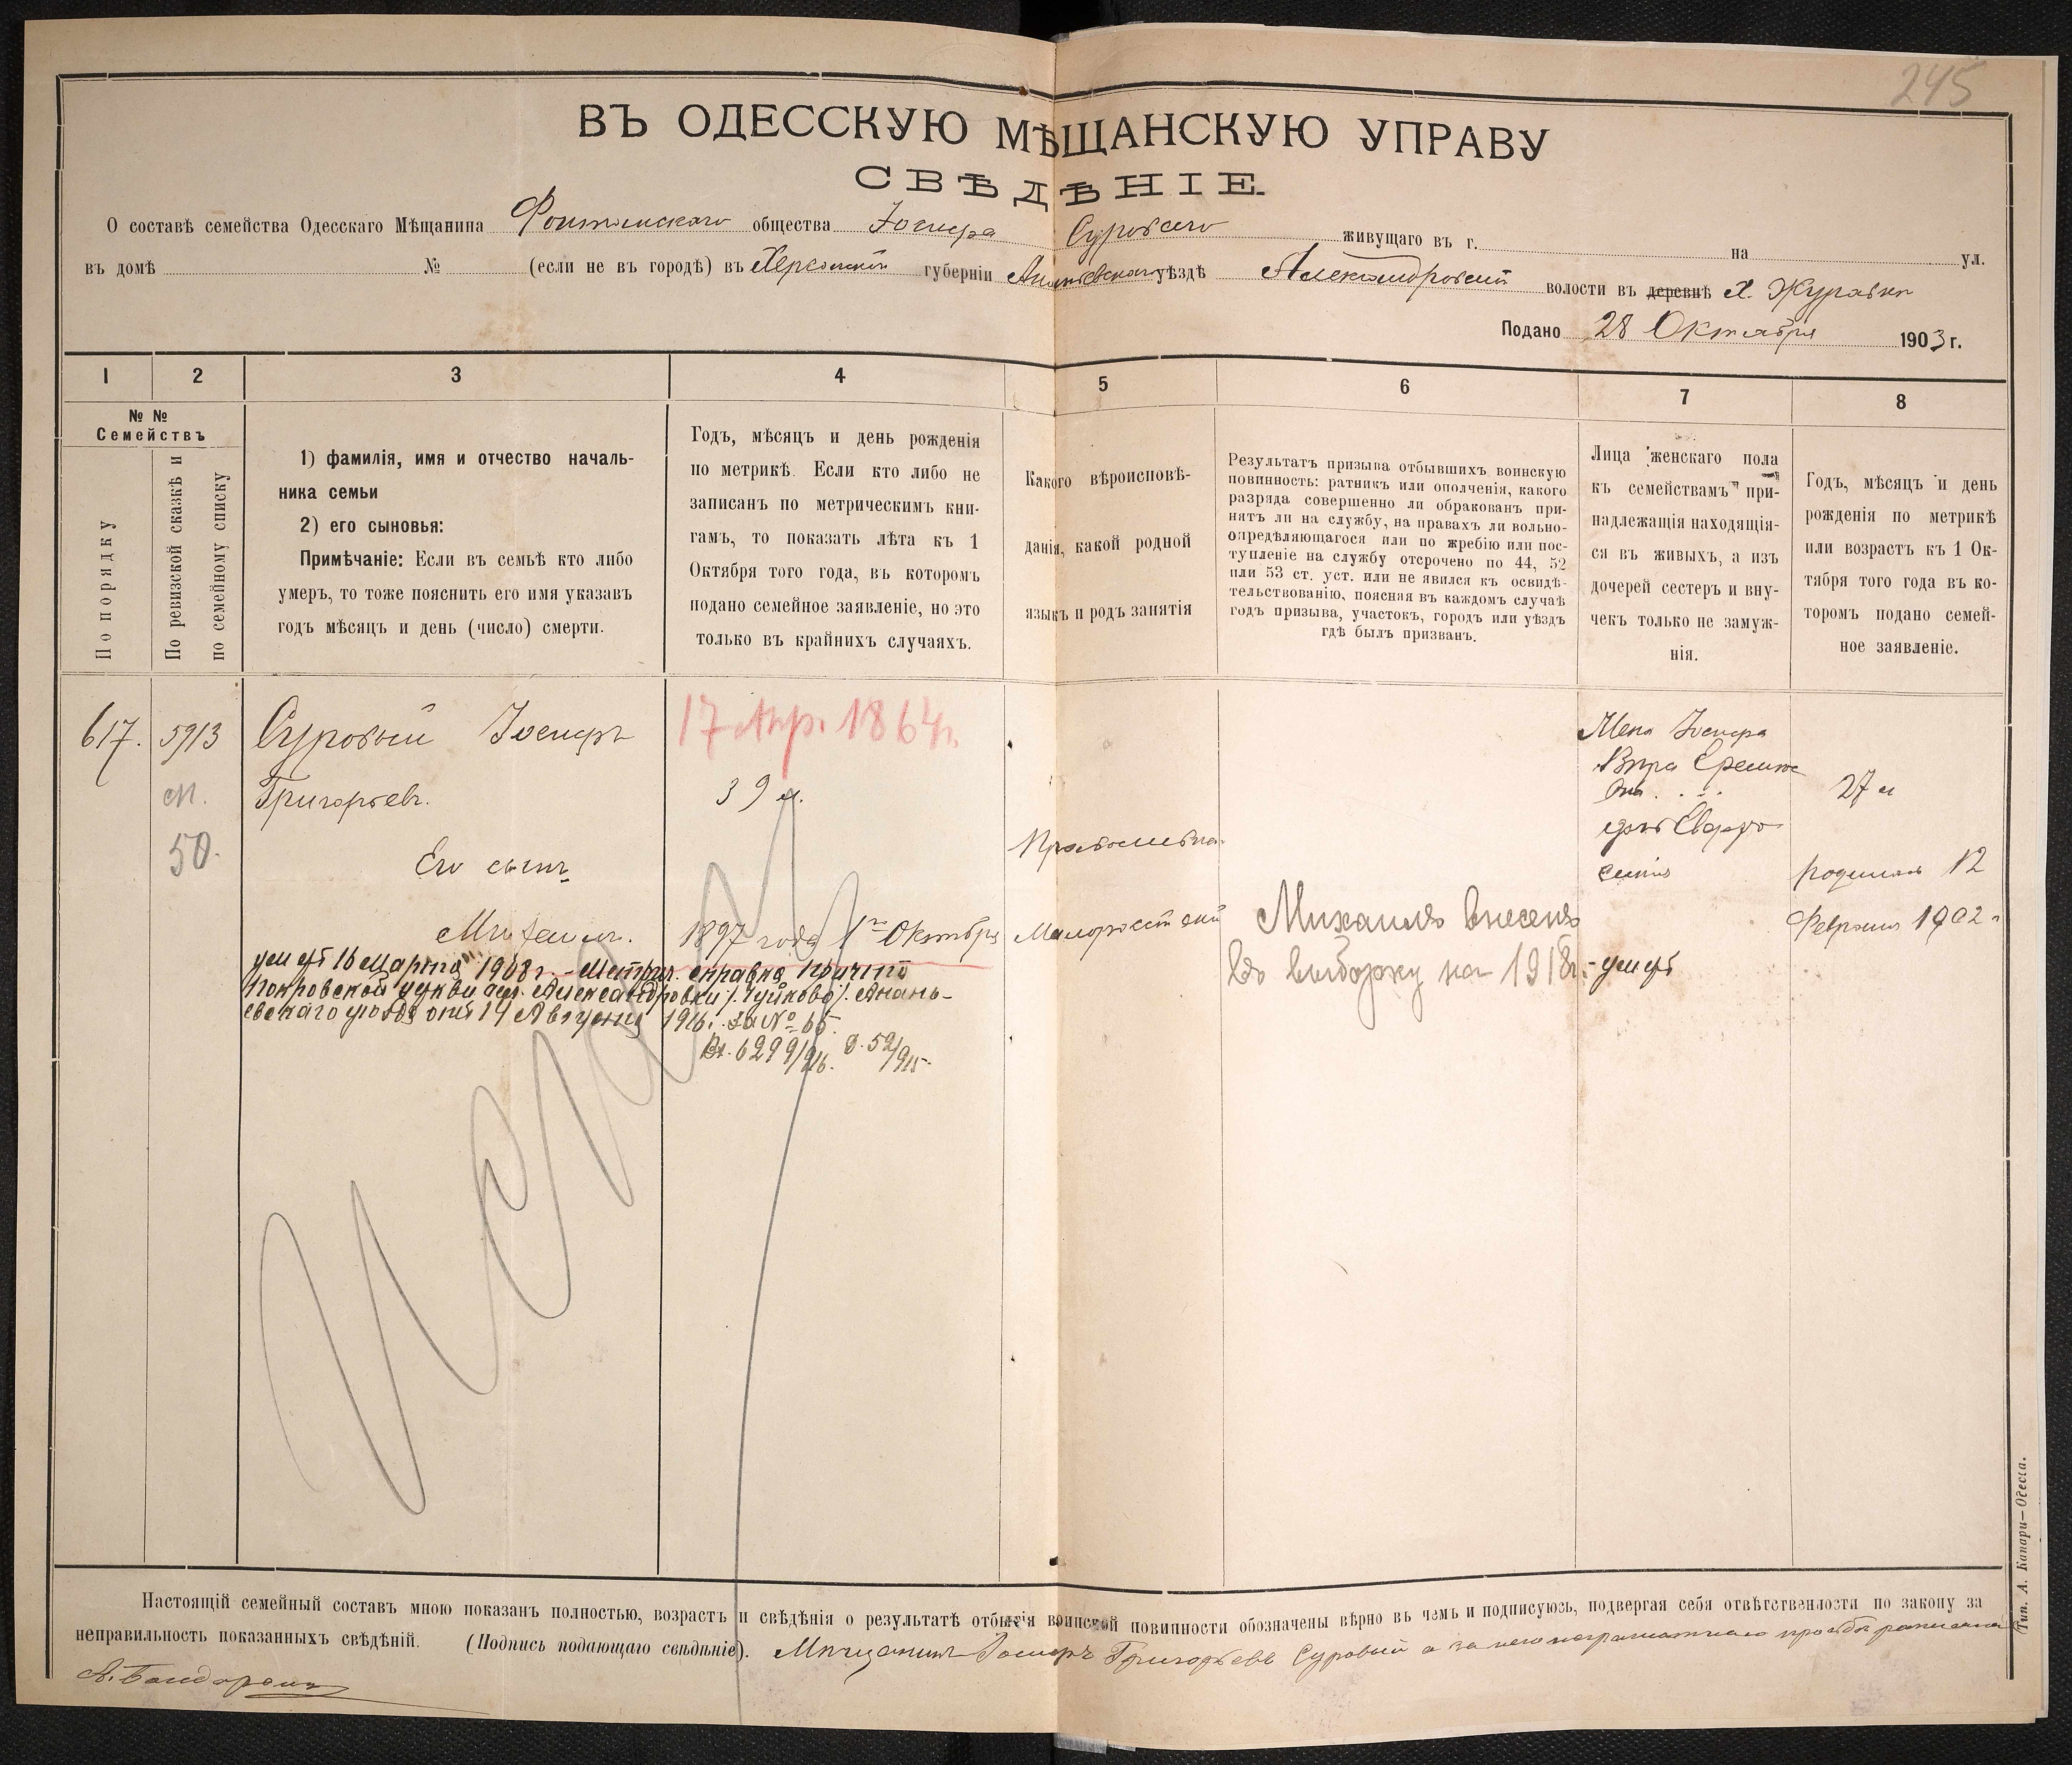 245
ВЪ ОДЕССКУЮ МѢЩАНСКУЮ УПРАВУ
СВѢДѢНІЕ.
О составѣ семейства Одесскаго Мѣщанина Фонтанскаго общества Іосифа Суроваго живущаго въ г. на ул.
въ домѣ № (если не въ городѣ) въ Херсонской губерніи Ананьевскаго уѣздѣ Александровской волости въ деревнѣ х. Журавка
Подано 28 Октября 1903 г.
1 2 3 4 5 6 7 8
№ №
Семействъ
По порядку
По ревизской сказкѣ и
по семейному списку
1) фамилія, имя и отчество началь-
ника семьи
2) его сыновья:
Примѣчаніе: Если въ семьѣ кто либо
умеръ, то тоже пояснить его имя указавъ
годъ мѣсяцъ и день (число) смерти.
Годъ, мѣсяцъ и день рожденія
по метрикѣ. Если кто либо не
записанъ по метрическимъ кни-
гамъ, то показать лѣта къ 1
Октября того года, въ которомъ
подано семейное заявленіе, но это
только въ крайнихъ случаяхъ.
Какого вѣроисповѣ-
данія, какой родной
языкъ и родъ занятія
Результатъ призыва отбывшихъ воинскую
повинность: ратникъ или ополченія, какого
разряда совершенно ли обракованъ при-
нятъ ли на службу, на правахъ ли вольно-
опредѣляющагося или по жребію или пос-
тупленіе на службу отсрочено по 44, 52
или 53 ст. уст. или не явился къ освидѣ-
тельствованію, поясняя въ каждомъ случаѣ
годъ призыва, участокъ, городъ или уѣздъ
гдѣ былъ призванъ.
Лица женскаго пола
къ семействамъ при-
надлежащія находящія-
ся въ живыхъ, а изъ
дочерей сестеръ и вну-
чекъ только не замуж-
нія.
Годъ, мѣсяцъ и день
рожденія по метрикѣ
или возрастъ къ 1 Ок-
тября того года въ ко-
торомъ подано семей-
ное заявленіе.
617. 5913 Суровый Іосифъ 17 Апр. 1864 г. Жена Іосифа
м. Григорьевъ. 39 л. Вѣра 27 л
50. Его сынъ Православна. дочь родилась 12
Михаилъ. 1897 года 1го Октября Малороссійскій Михаилъ внесенъ Февраля 1902 г
умеръ 16 Марта 1908 г. - Метрич. справка причта въ выборку на 1918 г. - умеръ
Покровской церкви сел. Александровки /. Чуйково /. Анань-
евскаго уѣзда отъ 14 Августа 1916 г. за № 65.
Вх. 6299/916. д. 52/915.
Настоящій семейный составъ мною показанъ полностью, возрастъ и свѣдѣнія о результатѣ отбытія воинской повинности обозначены вѣрно въ чемъ и подписуюсь, подвергая себя отвѣтственности по закону за
неправильность показанныхъ свѣдѣній. (Подпись подающаго свѣдѣніе). Мѣщанинъ Іосифъ Григорьевъ Суровый а за него неграмотнаго по просьбѣ
А. Бондаренко
Тип. А. Капари—Одесса.